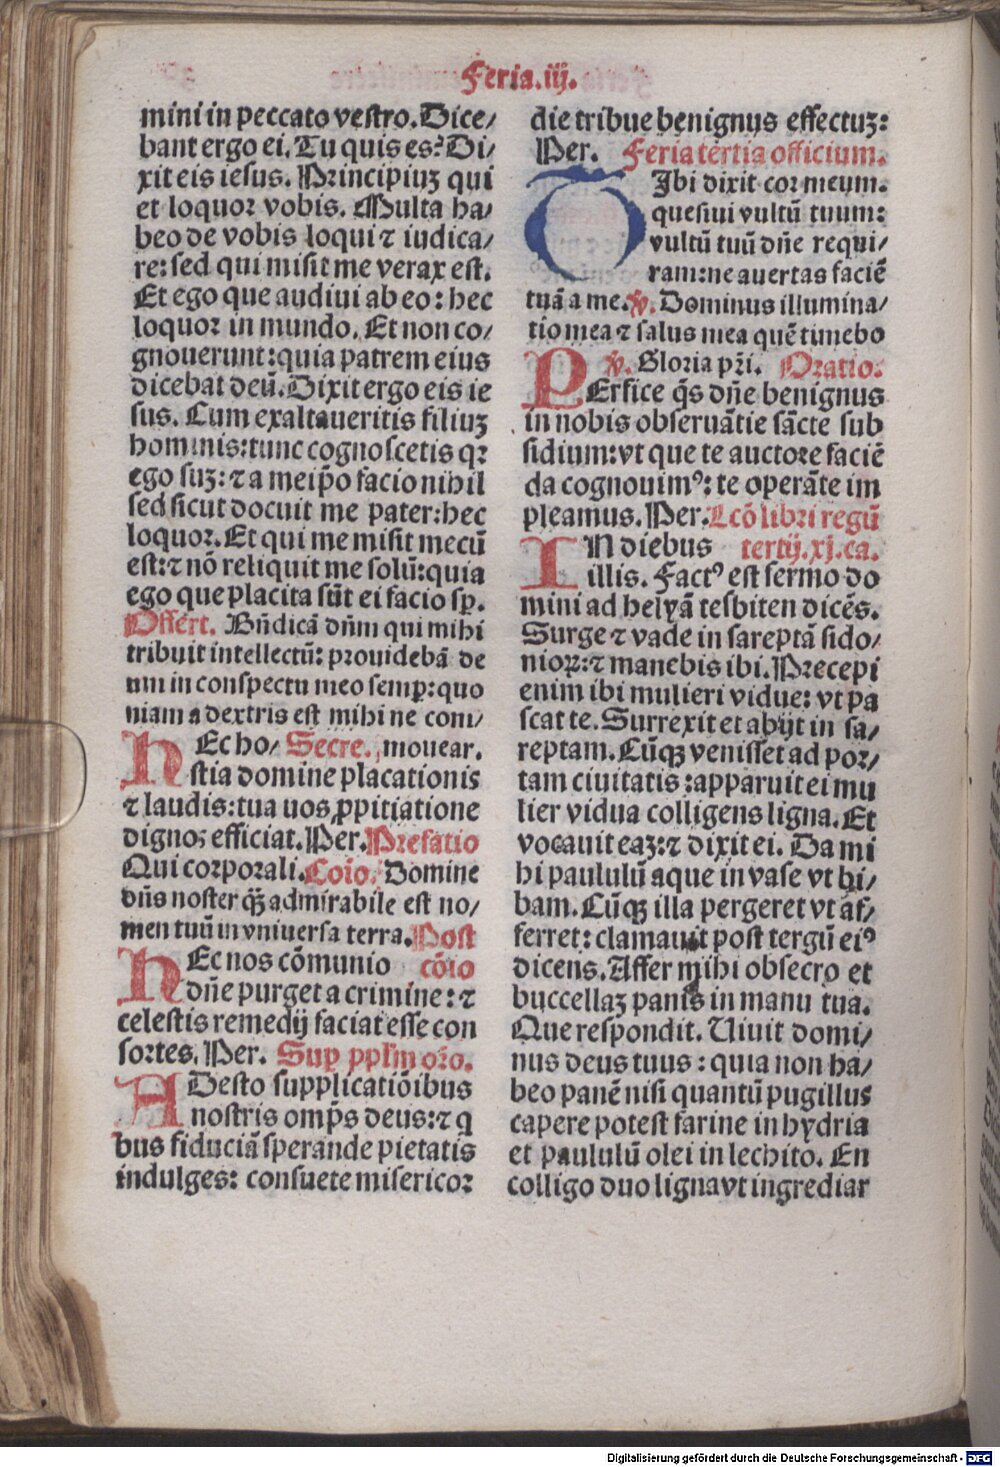 Feria.iij.
mini in peccato vestro. Dice/
bant ergo ei. Tu quis es? Di/
xit eis iesus. Principiuȝ qui
et loquor vobis. Multa ha/
beo de vobis loqui ⁊ iudica/
re: sed qui misit me verax est.
Et ego que audiui ab eo: hec
loquor in mundo. Et non co/
gnouerunt: quia patrem eius
dicebat deū. Dixit ergo eis ie
sus. Cum exaltaueritis filiuȝ
hominis: tunc cognoscetis qꝛ
ego suȝ: ⁊ a meip̄o facio nihil
sed sicut docuit me pater: hec
loquor. Et qui me misit mecū
est: ⁊ nō reliquit me solū: quia
ego que placita sūt ei facio sp̄.
Offert. Bn̄dicā dn̄m qui mihi
tribuit intellectū: prouidebā de
um in conspectu meo semp̄: quo
niam a dextris est mihi ne com/
HEc ho/ Secre. mouear.
stia domine placationis
⁊ laudis: tua nos ꝓpitiatione
dignos efficiat. Per. Prefatio
Qui corporali. Coīo. Domine
dn̄s noster q̄ȝ admirabile est no/
men tuū in vniuersa terra. Post
HEc nos cōmunio cōio
dn̄e purget a crimine: ⁊
celestis remedij faciat esse con
sortes. Per. Sup̄ pplm̄ oro.
ADesto supplicatiōibus
nostris omp̄s deus: ⁊ q
bus fiduciā sperande pietatis
indulges: consuete misericor
die tribue benignus effectuȝ:
Per. Feria tertia officium.
TIbi dixit cor meum.
quesiui vultū tuum:
vultū tuū dn̄e requi/
ram: ne auertas faciē
tuā a me. ℣. Dominus illumina/
tio mea ⁊ salus mea quē timebo
℣. Gloria pr̄i. Oratio.
PErfice q̄s dn̄e benignus
in nobis obseruātie sācte sub
sidium: vt que te auctore faciē
da cognouimꝰ: te operāte im
pleamus. Per. Lcō libri regū
IN diebus tertij. xj. ca.
illis. Factꝰ est sermo do
mini ad helyā tesbiten dicēs.
Surge ⁊ vade in sareptā sido/
nioꝝ: ⁊ manebis ibi. Precepi
enim ibi mulieri vidue: vt pa
scat te. Surrexit et abijt in sa/
reptam. Cūqꝫ venisset ad por/
tam ciuitatis: apparuit ei mu
lier vidua colligens ligna. Et
vocauit eaȝ: ⁊ dixit ei. Da mi
hi paululū aque in vase vt bi/
bam. Cūqꝫ illa pergeret vt af/
ferret: clamauit post tergū eiꝰ
dicens. Affer mihi obsecro et
buccellaȝ panis in manu tua.
Que respondit. Uiuit domi/
nus deus tuus: quia non ha/
beo panē nisi quantū pugillus
capere potest farine in hydria
et paululū olei in lechito. En
colligo duo ligna vt ingrediar
Digitalisierung gefördert durch die Deutsche Forschungsgemeinschaft - DFG